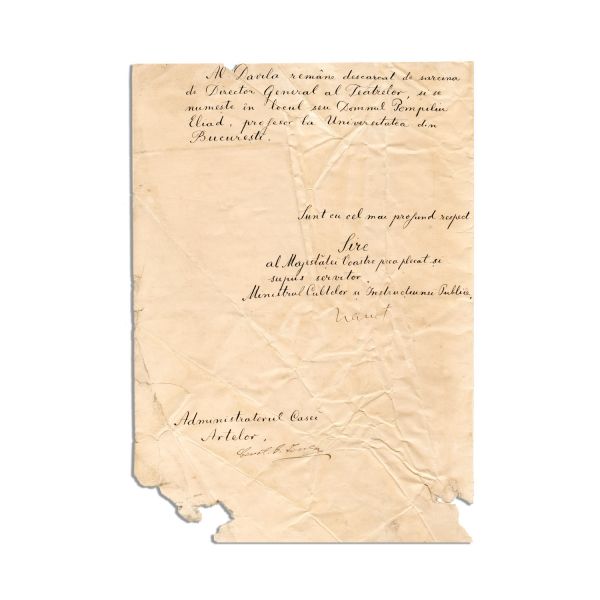 Al. Davila rĕmâne descarcat de sarcina
de Director General al Teatrelor, si se
numeste in locul seu Domnul Pompiliu
Eliad, profesor la Universitatea din
Bucuresti.
Sunt cu cel mai profund respect
Sire
al Majestătei Voastre prea plecat si
supus servitor
Ministrul Cultelor si Instructiunei Publice,
Haret
Administratorul Casei
Artelor,